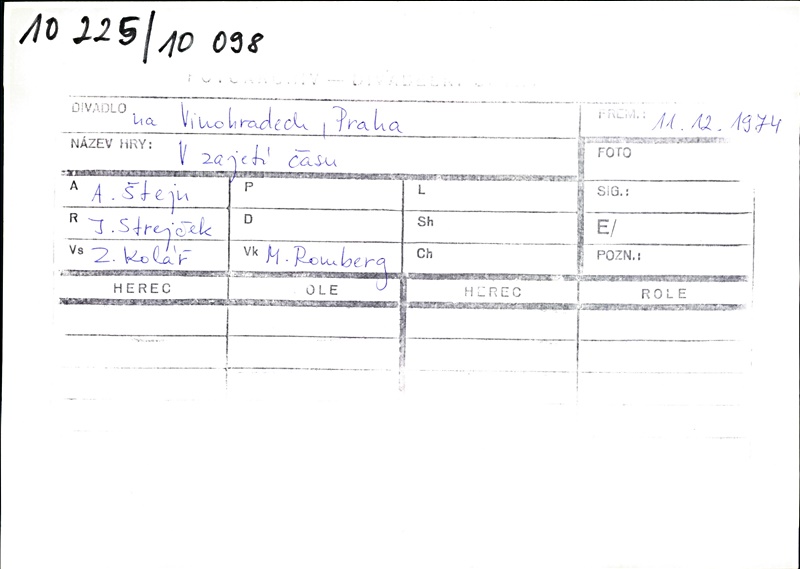 10 225/10 098
DIVADLO na Vinohradech, Praha PREM.: 11.12.1974
NÁZEV HRY: V zajetí času FOTO
A A. Štejn P L SIG.:
R J. Strejček D Sh E/
Vs Z. Kolář Vk M. Romberg Ch POZN.:
HEREC OLE HEREC ROLE